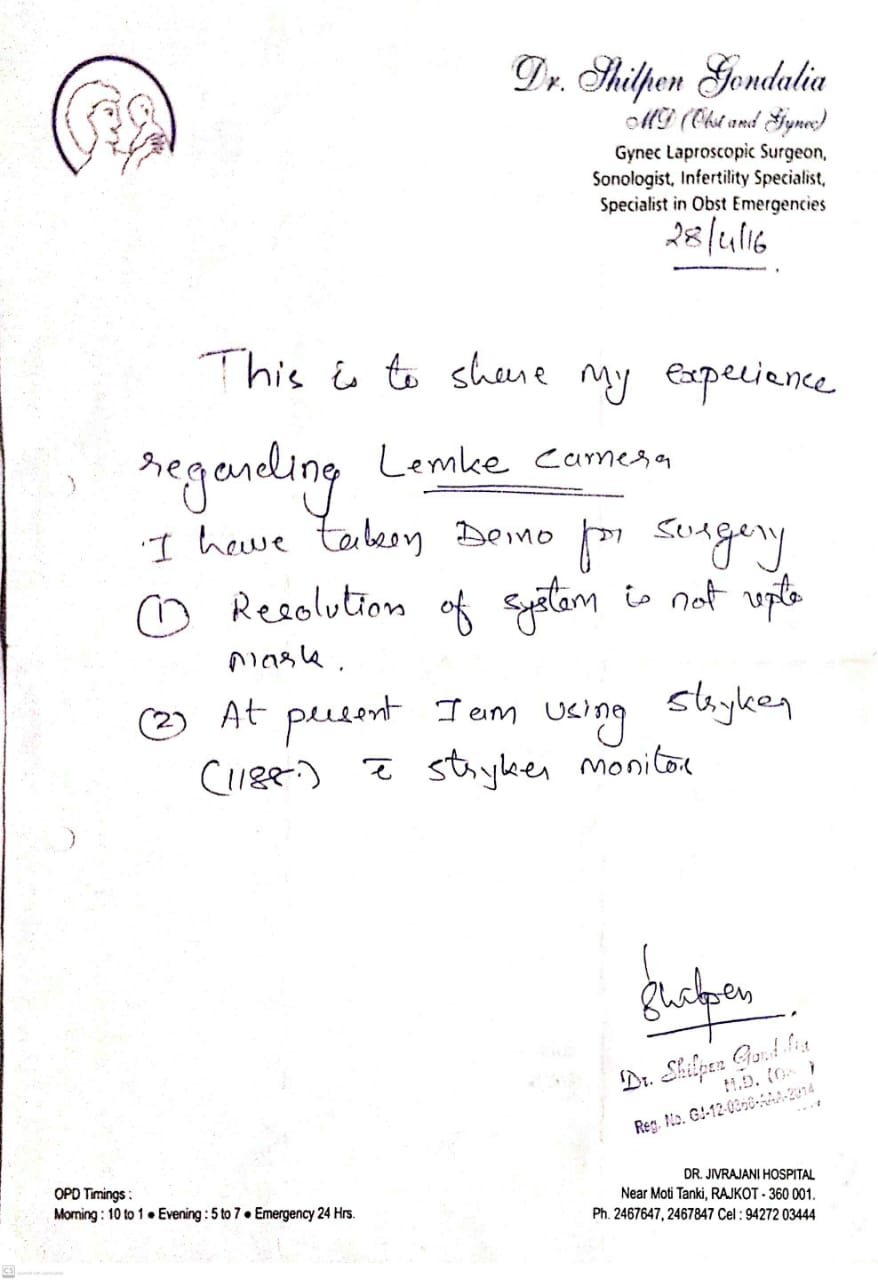 Dr. Shilpen Gondalia
MD (Obst and Gynec)
Gynec Laproscopic Surgeon,
Sonologist, Infertility Specialist,
Specialist in Obst Emergencies
28/4/16
This is to share my experiance
regarding Lemke camera
I have taken Demo for surgery
(1) Resolution of system is not upto
mark.
(2) At present I am using stryker
(1188.) c̄ stryker monitor
Shilpen
Dr. Shilpen Gondalia
M.D. (
Reg. No. GJ-12-0366-AAA-2014
DR. JIVRAJANI HOSPITAL
OPD Timings :
Near Moti Tanki, RAJKOT - 360 001.
Morning : 10 to 1 ● Evening : 5 to 7 ● Emergency 24 Hrs.
Ph. 2467647, 2467847 Cel : 94272 03444
CS